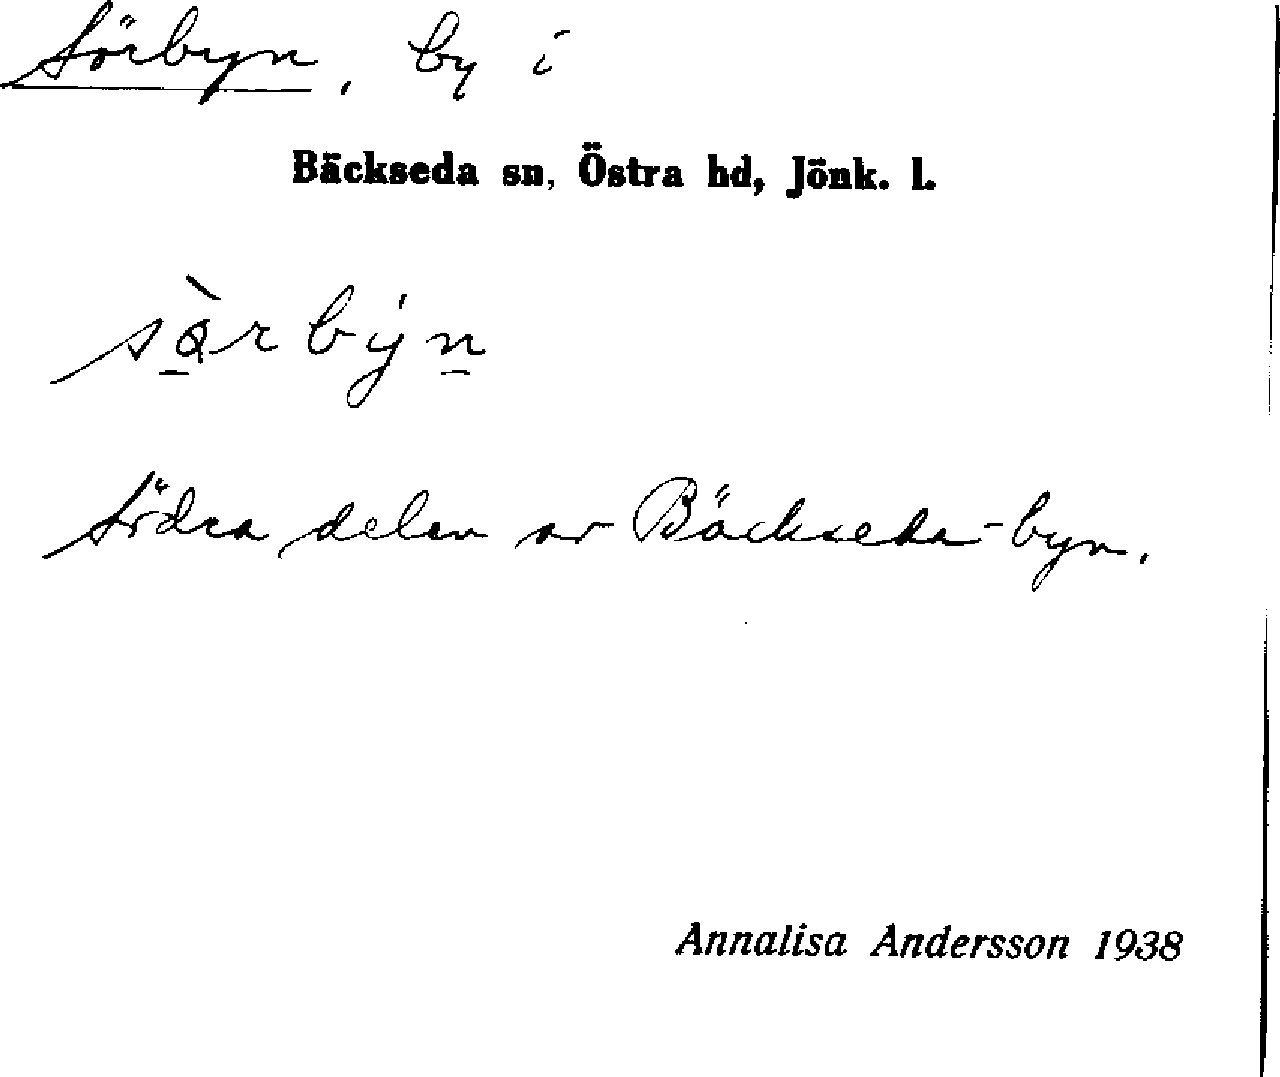 Sörbyn, by i
Bäckseda sn, Östra hd, Jönk. l.
Södra delen av Bäckseda-byn.
Annalisa Andersson 1938